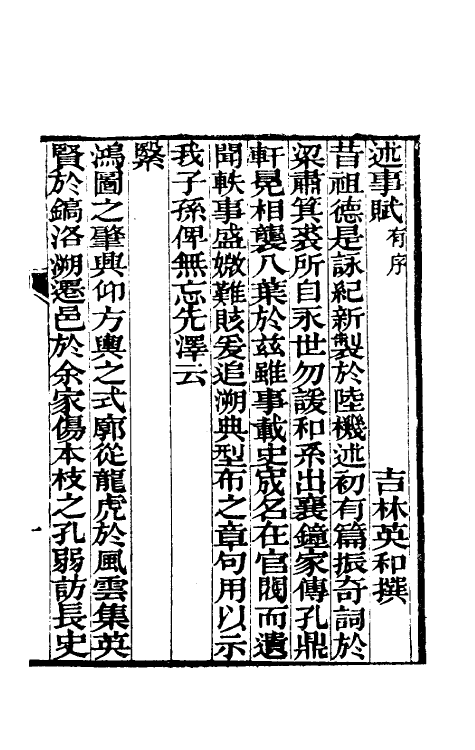 述事賦有序 吉林英和撰
昔祖德是詠紀新製於陸機述初有篇振奇詞於
梁肅箕裘所自永世勿諼和系出襄鐘家傳孔鼎
軒冕相襲八葉於茲雖事載史宬名在官閥而遺
聞軼事盛媺難賅爰追溯典型布之章句用以示
我子孫俾無忘先澤云
繄
鴻圖之肇興仰方輿之式廓從龍虎於風雲集英
賢於鎬洛溯遷邑於余家傷本枝之孔弱訪長史